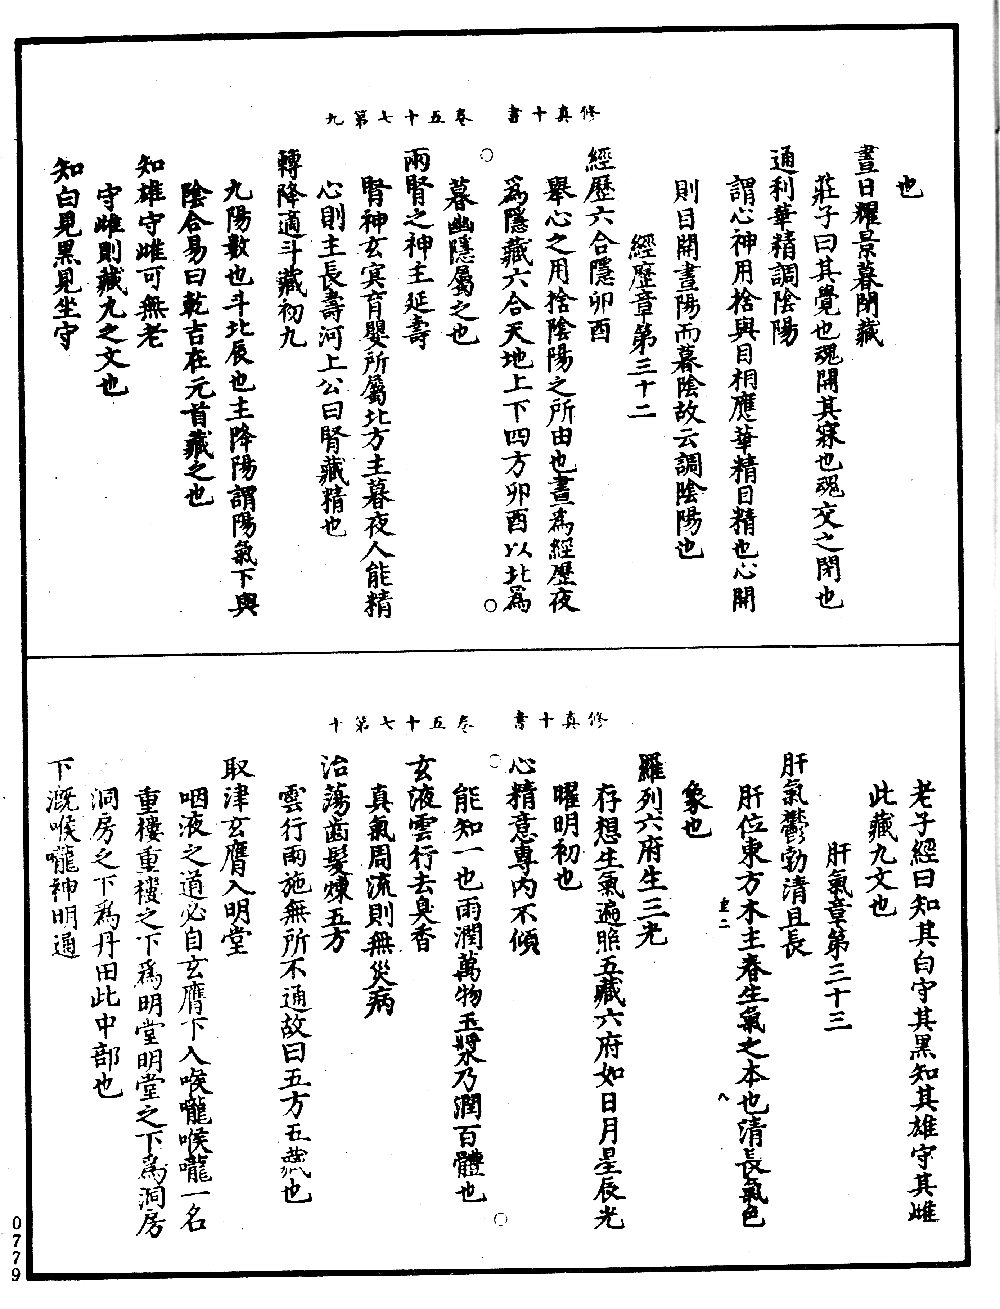 修真十書　卷五十七第九
也
晝日耀景暮閉藏
莊子曰其覺也魂開其寐也魂交之閉也
通利華精調陰陽
謂心神用捨與目相應華精目精也心開
則目開晝陽而暮陰故云調陰陽也
經歷章第三十二
經歷六合隱卯酉
舉心之用捨陰陽之所由也晝為經歷夜
為隱藏六合天地上下四方卯酉以北為
暮幽隱屬之也
兩腎之神主延壽
腎神玄冥育嬰所屬北方主暮夜人能精
心則主長壽河上公曰腎藏精也
轉降適斗藏初九
九陽數也斗北辰也主降陽謂陽氣下與
陰合易曰乾吉在元首藏之也
知雄守雌可無老
守雌則藏九之文也
知白見黑見坐守
修真十書　卷五十七第十
老子經曰知其白守其黑知其雄守其雌
此藏九文也
肝氣章第三十三
肝氣鬱勃清且長
肝位東方木主春生氣之本也清長氣色
象也
羅列六府生三光
存想生氣遍照五藏六府如日月星辰光
曜明初也
心精意專內不傾
能知一也雨潤萬物玉漿乃潤百體也
玄液雲行去臭香
真氣周流則無災病
治蕩齒髮煉五方
雲行雨施無所不通故曰五方五藏也
取津玄膺入明堂
咽液之道必自玄膺下入喉嚨喉嚨一名
重樓重樓之下為明堂明堂之下為洞房
洞房之下為丹田此中部也
下溉喉嚨神明通
0779